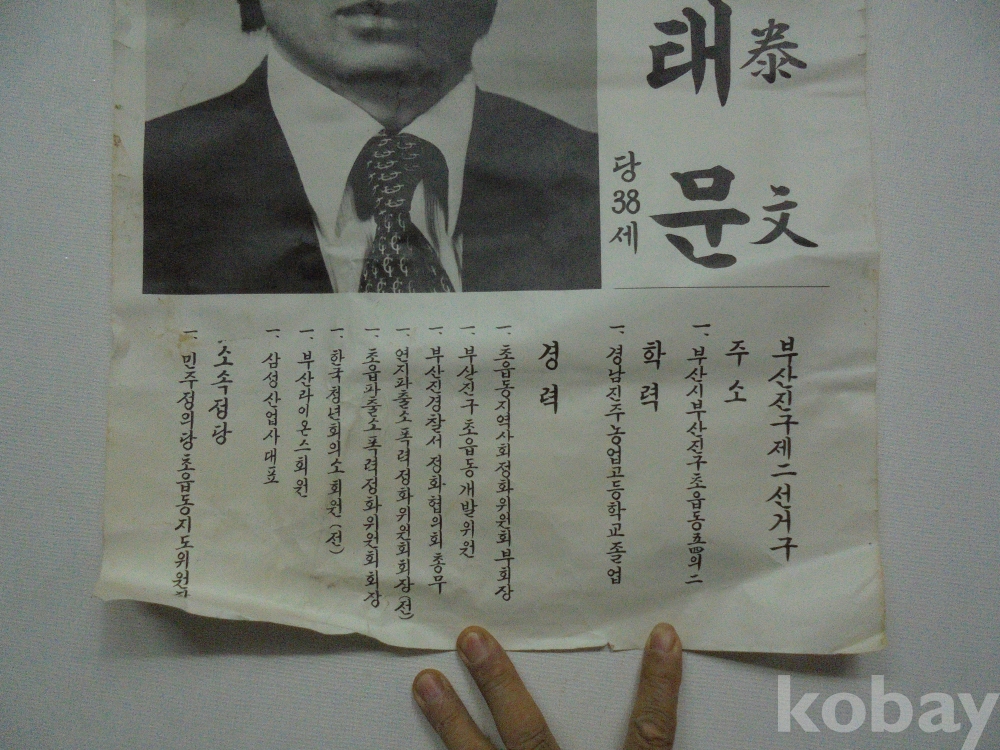 태 문
泰 文
당 38 세
부산진구제二선거구
주소
一. 부산시부산진구초읍동五四의二
학력
一. 경남진주농업고등학교졸업
경력
一. 초읍동지역사회정화위원회부회장
一. 부산진구 초읍동개발위원
一. 부산진경찰서 정화협의회총무
一. 연지파출소폭력정화위원회회장(전)
一. 초읍파출소폭력정화위원회회장
一. 한국청년회의소회원(전)
一. 부산라이온스회원
一. 삼성산업사대표
소속정당
一. 민주정의당초읍동지도위원
kobay